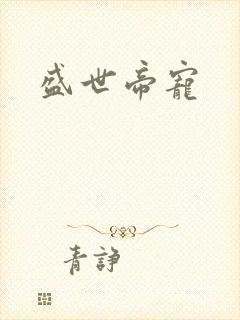 盛世帝寵
青諍